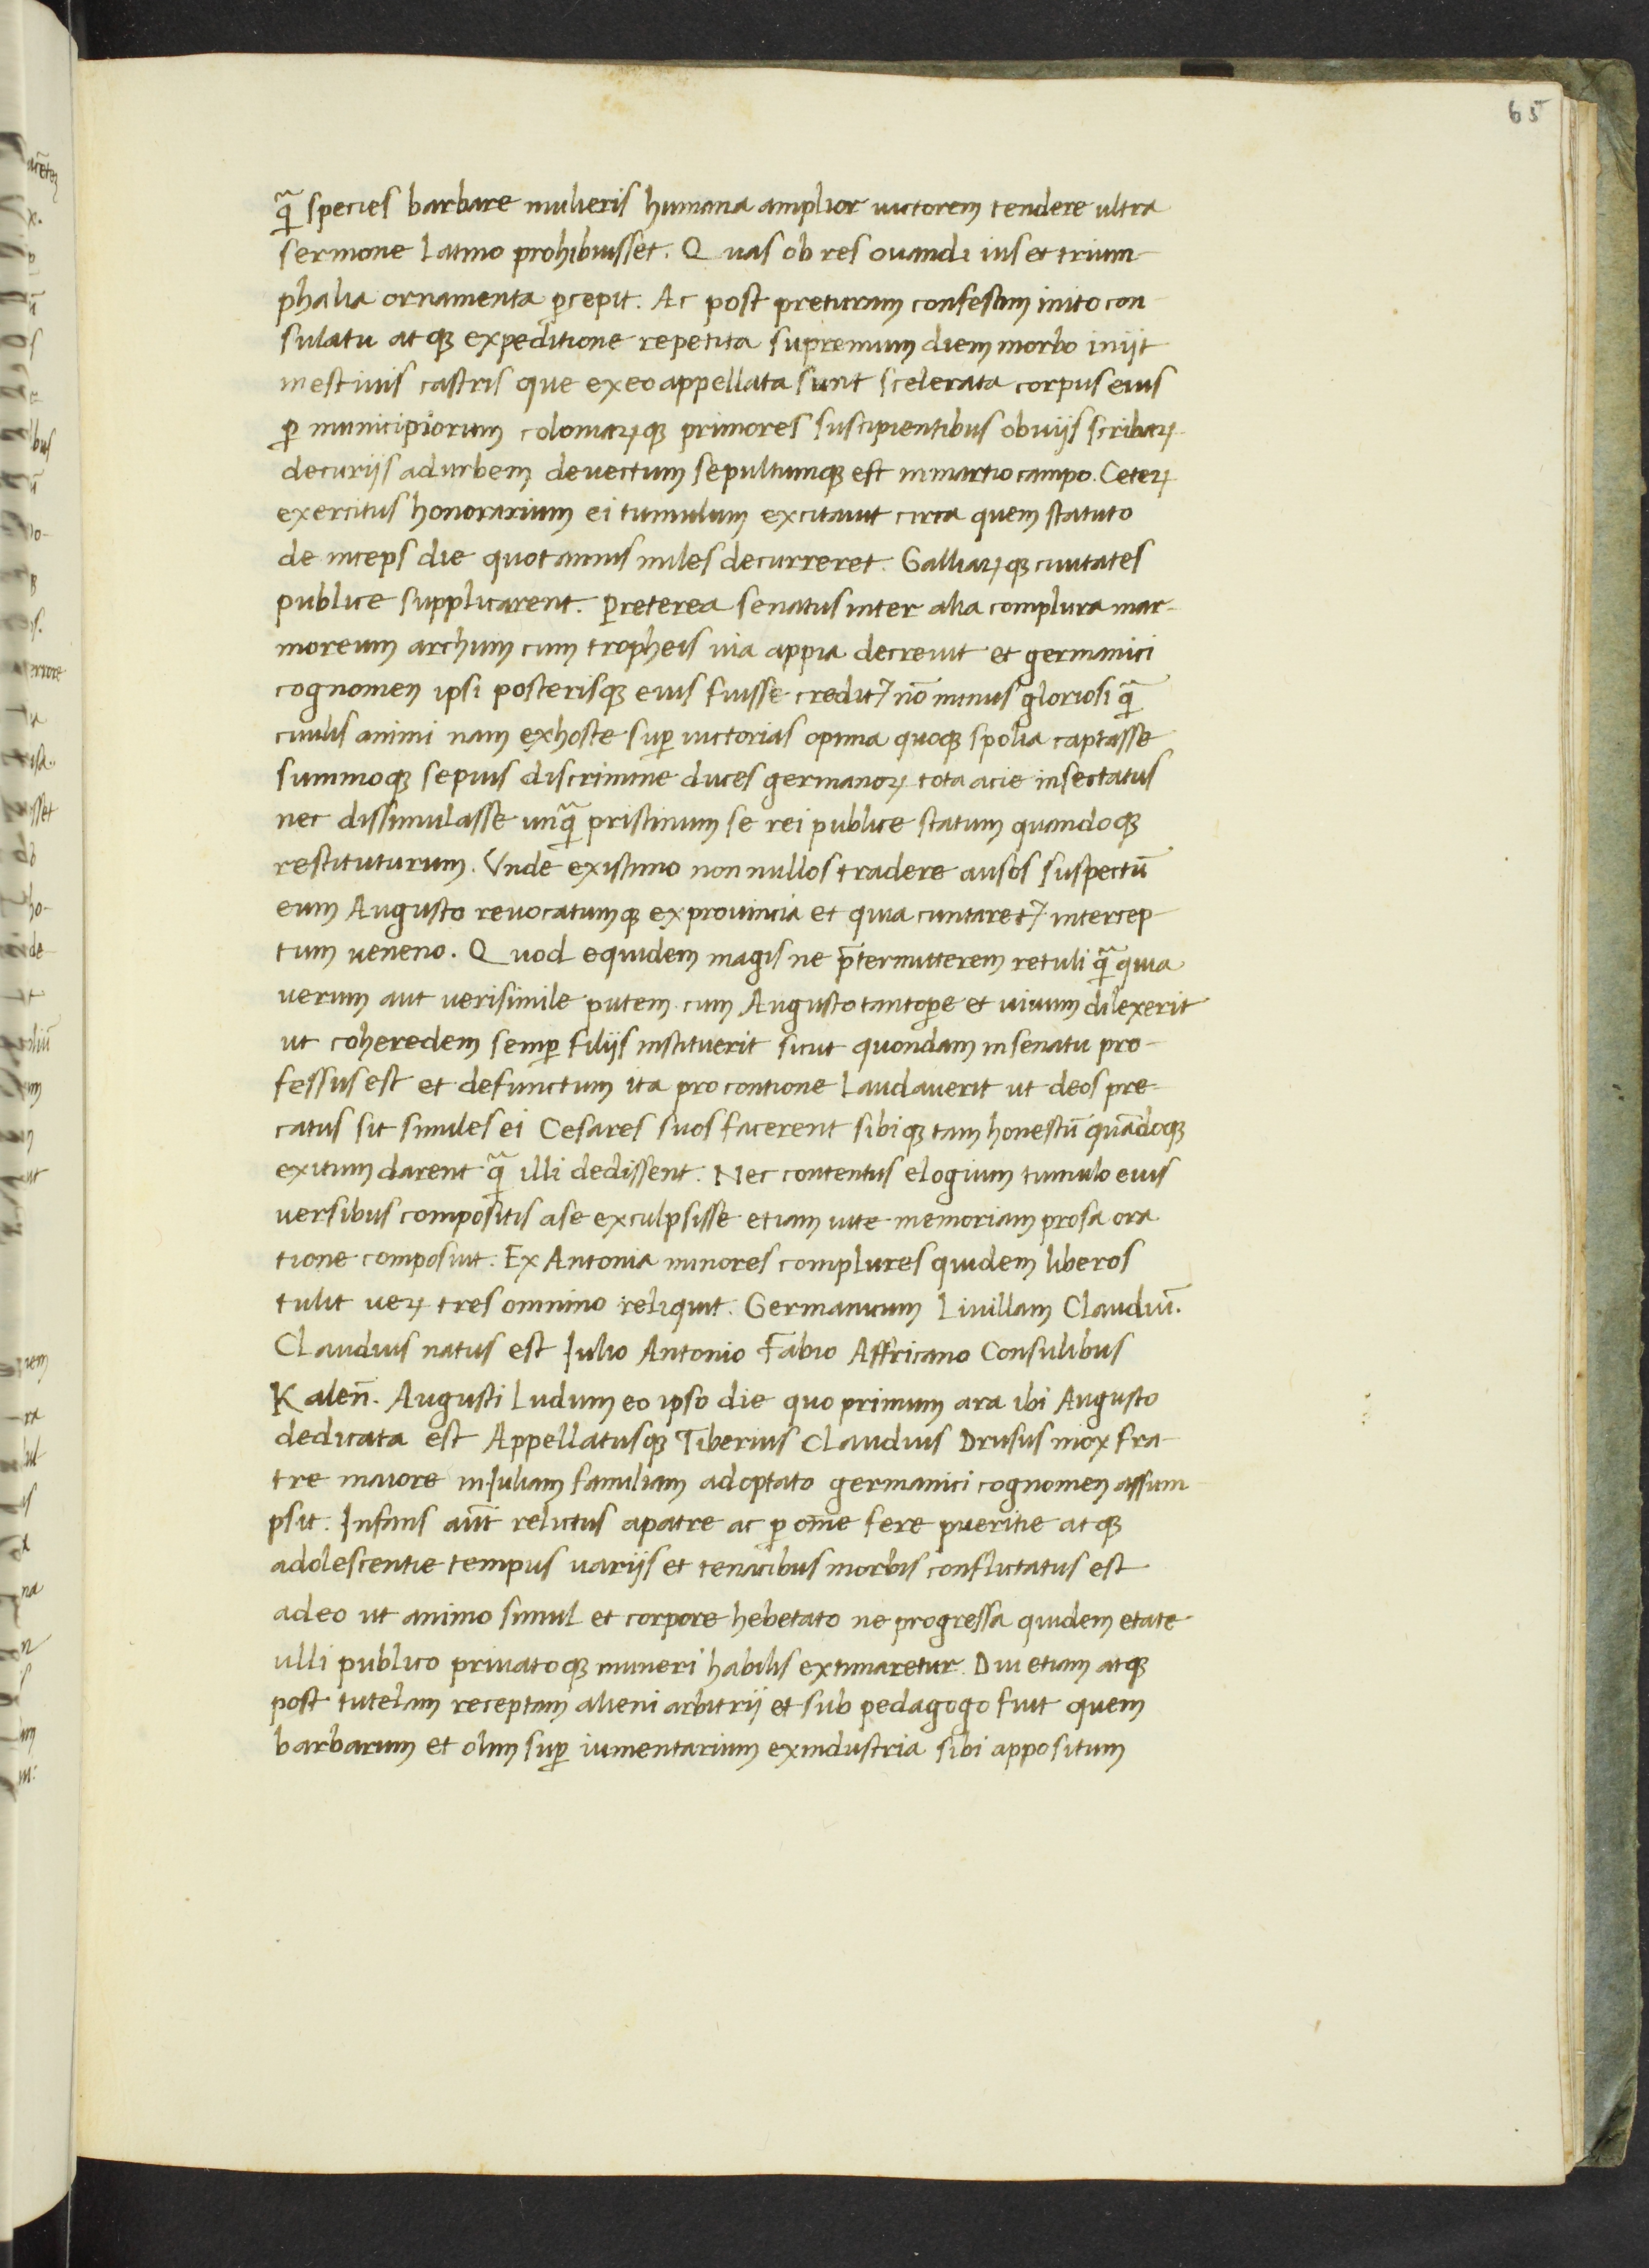 65
qᷓ species barbare mulieris humana amplior uictorem tendere ultra
sermone latino prohibuisset. Quas ob res ouandi ius et trium-
phalia ornamenta ꝑcepit. Ac post preturam confestim inito con-
sulatu atqꝫ expeditione repetita supremum diem morbo iniit
in estiuis castris que ex eo appellata sunt scelerata corpus eius
ꝑ municipiorum coloniaꝝqꝫ primores suscipientibus obuijs scribaꝝ
decurijs ad urbem deuectum sepultumqꝫ est in martio campo. Ceteꝝ
exercitus honorarium ei tumulum excitauit circa quem statuto
de inceps die quotannis miles decurreret. Galliaꝝqꝫ ciuitates
publice supplicarent. Preterea senatus inter alia complura mar-
moreum archum cum tropheis uia appia decreuit et germanici
cognomen ipsi posterisqꝫ eius fuisse credit⁊ nō minus gloriosi qᷓ
ciuilis animi nam ex hoste suꝑ uictorias opima quoqꝫ spolia captasse
summoqꝫ sepius discrimine duces germanoꝝ tota acie insectatus
nec dissimulasse unqᷓ pristinum se rei publice statum quandoqꝫ
restituturum. Vnde existimo non nullos tradere ausos suspectū
eum Augusto reuocatumqꝫ ex prouincia et quia cuntaret⁊ intercep-
tum ueneno. Quod equidem magis ne p̄termitterem retuli qᷓ quia
uerum aut uerisimile putem cum Augusto tantoꝑe et uiuum dilexerit
ut coheredem semꝑ filijs instituerit sicut quondam in senatu pro-
fessus est et defunctum ita pro contione laudauerit ut deos pre-
catus sit similes ei Cesares suos facerent sibiqꝫ tam honestū quādoqꝫ
exitum darent qᷓ illi dedissent. Nec contentus elogium tumulo eius
uersibus compositis a se exculpsisse etiam uite memoriam prosa ora
tione composuit. Ex Antonia minores complures quidem liberos
tulit ueꝝ tres omnino reliquit. Germanicum Liuillam Claudiū.
Claudius natus est Julio Antonio Fabio Affricano Consulibus
Kalen̄. Augusti Ludum eo ipso die quo primum ara ibi Augusto
dedicata est Appellatusqꝫ Tiberius Claudius Drusus mox fra-
tre maiore in Juliam familiam adoptato germanici cognomen assum-
psit. Infans aūt relictus a patre ac ꝑ om̄e fere pueritie atqꝫ
adolescentie tempus uarijs et tenacibus morbis conflictatus est
adeo ut animo simul et corpore hebetato ne progressa quidem etate
ulli publico priuatoqꝫ muneri habilis extimaretur. Diu etiam atqꝫ
post tutelam receptam alieni arbitrij et sub pedagogo fuit quem
barbarum et olim suꝑ iumentarium ex industria sibi appositum